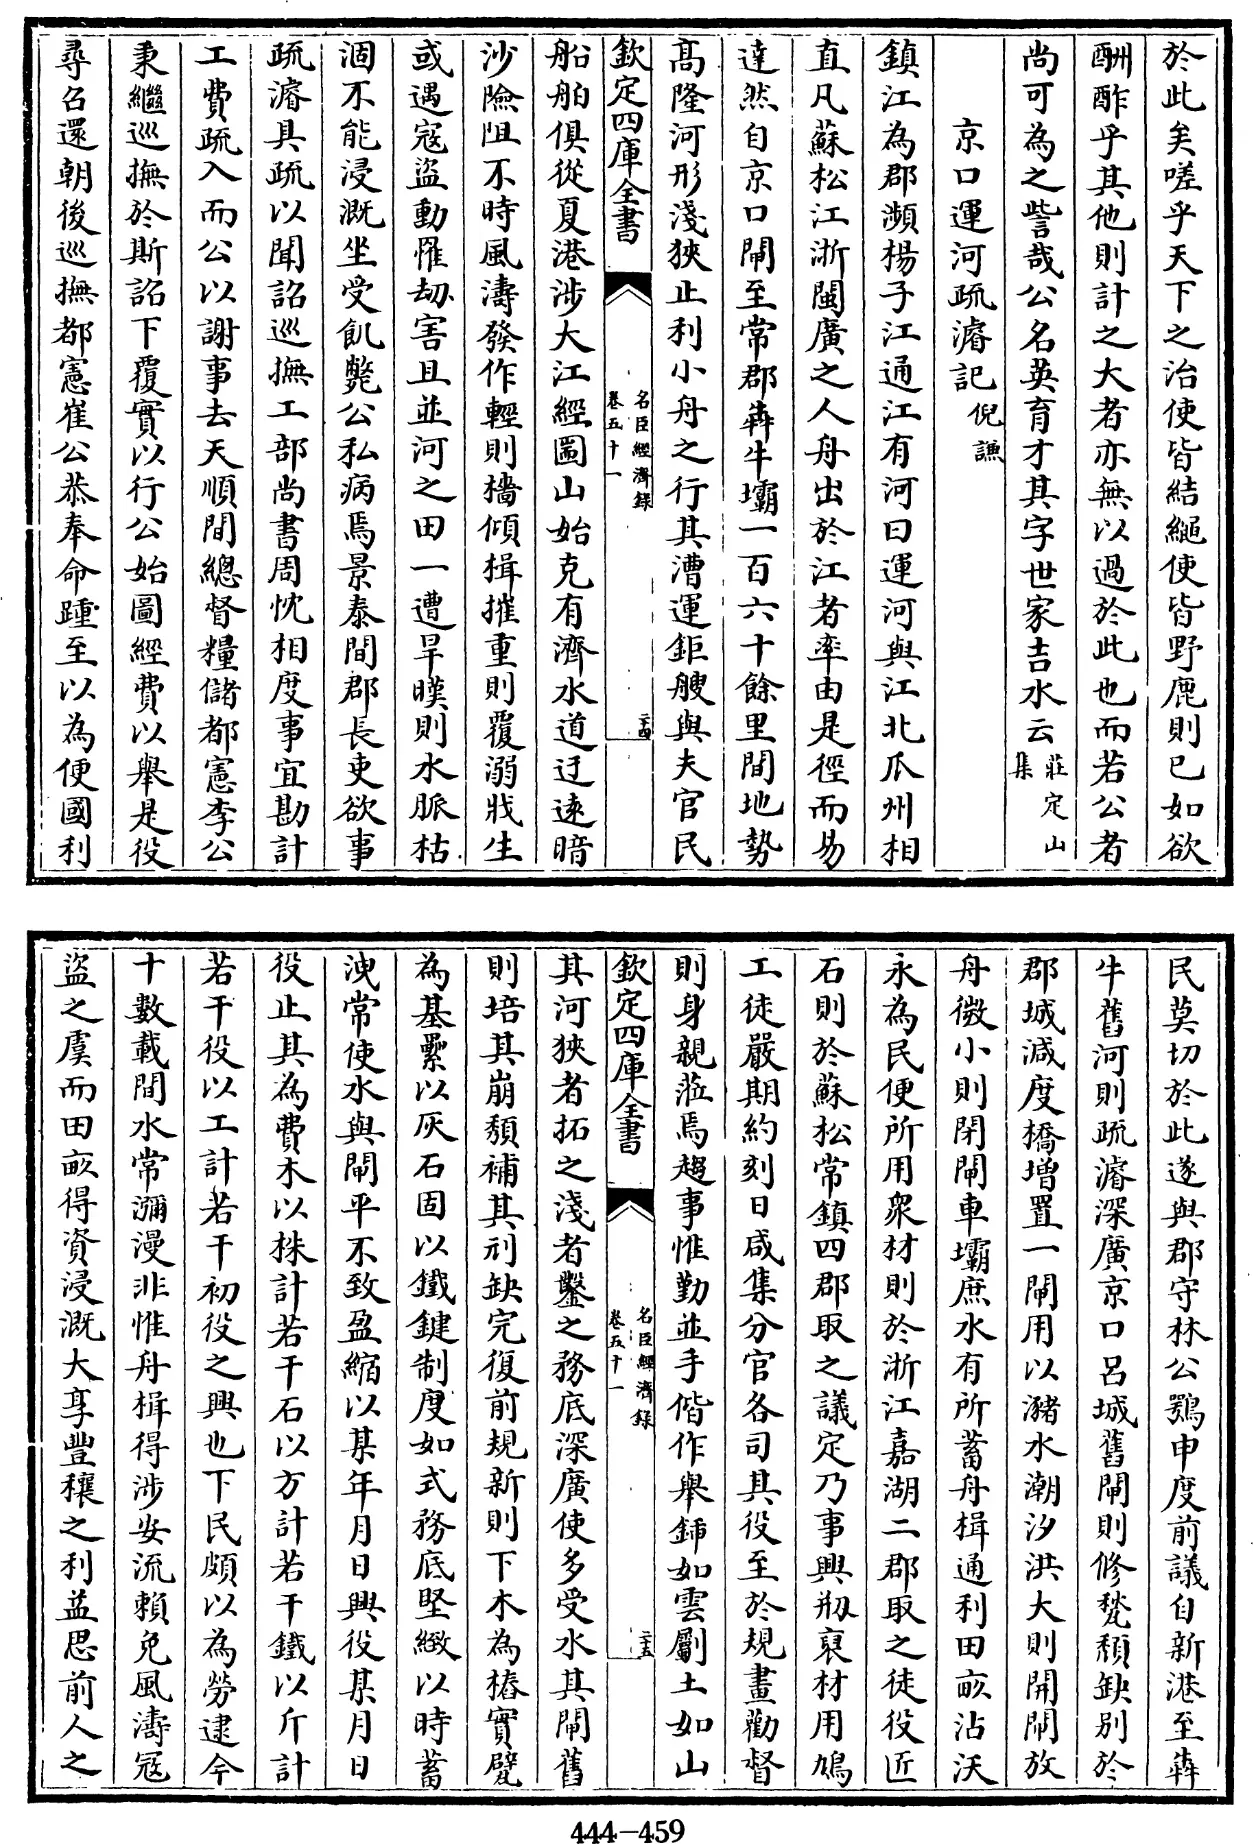 於此矣嗟乎天下之治使皆結繩使皆野鹿則已如欲
酬酢乎其他則計之大者亦無以過於此也而若公者
尚可為之訾哉公名英育才其字世家吉水云莊定山集
京口運河疏濬記倪謙
鎮江為郡瀕楊子江通江有河曰運河與江北瓜州相
直凡蘇松江浙閩廣之人舟出於江者率由是徑而易
達然自京口閘至常郡犇牛壩一百六十餘里間地勢
髙隆河形淺狹止利小舟之行其漕運鉅艘與夫官民
欽定四庫全書
名臣經濟録
卷五十一
二十四
船舶俱從夏港涉大江經圌山始克有濟水道迂逺暗
沙險阻不時風濤發作輕則檣傾楫摧重則覆溺戕生
或遇寇盜動罹劫害且並河之田一遭旱暵則水脈枯
涸不能浸溉坐受飢斃公私病焉景泰間郡長吏欲事
疏濬具疏以聞詔巡撫工部尚書周忱相度事宜勘計
工費疏入而公以謝事去天順間總督糧儲都憲李公
秉繼巡撫於斯詔下覆實以行公始圖經費以舉是役
尋召還朝後巡撫都憲崔公恭奉命踵至以為便國利
民莫切於此遂與郡守林公鶚申度前議自新港至犇
牛舊河則疏濬深廣京口呂城舊閘則修甃頹缺别於
郡城減度橋增置一閘用以瀦水潮汐洪大則開閘放
舟微小則閉閘車壩庶水有所蓄舟楫通利田畝沾沃
永為民便所用衆材則於浙江嘉湖二郡取之徒役匠
石則於蘇松常鎮四郡取之議定乃事興剏裒材用鳩
工徒嚴期約刻日咸集分官各司其役至於規畫勸督
則身親蒞焉趨事惟勤並手偕作舉鍤如雲劚土如山
欽定四庫全書
名臣經濟録
卷五十一
二十五
其河狹者拓之淺者鑿之務底深廣使多受水其閘舊
則培其崩頹補其刓缺完復前規新則下木為樁實甓
為基纍以灰石固以鐵鍵制度如式務底堅緻以時蓄
洩常使水與閘平不致盈縮以某年月日興役某月日
役止其為費木以株計若干石以方計若干鐵以斤計
若干役以工計若干初役之興也下民頗以為勞逮今
十數載間水常瀰漫非惟舟楫得涉安流賴免風濤冦
盜之虞而田畝得資浸溉大享豐穰之利益思前人之
444-459